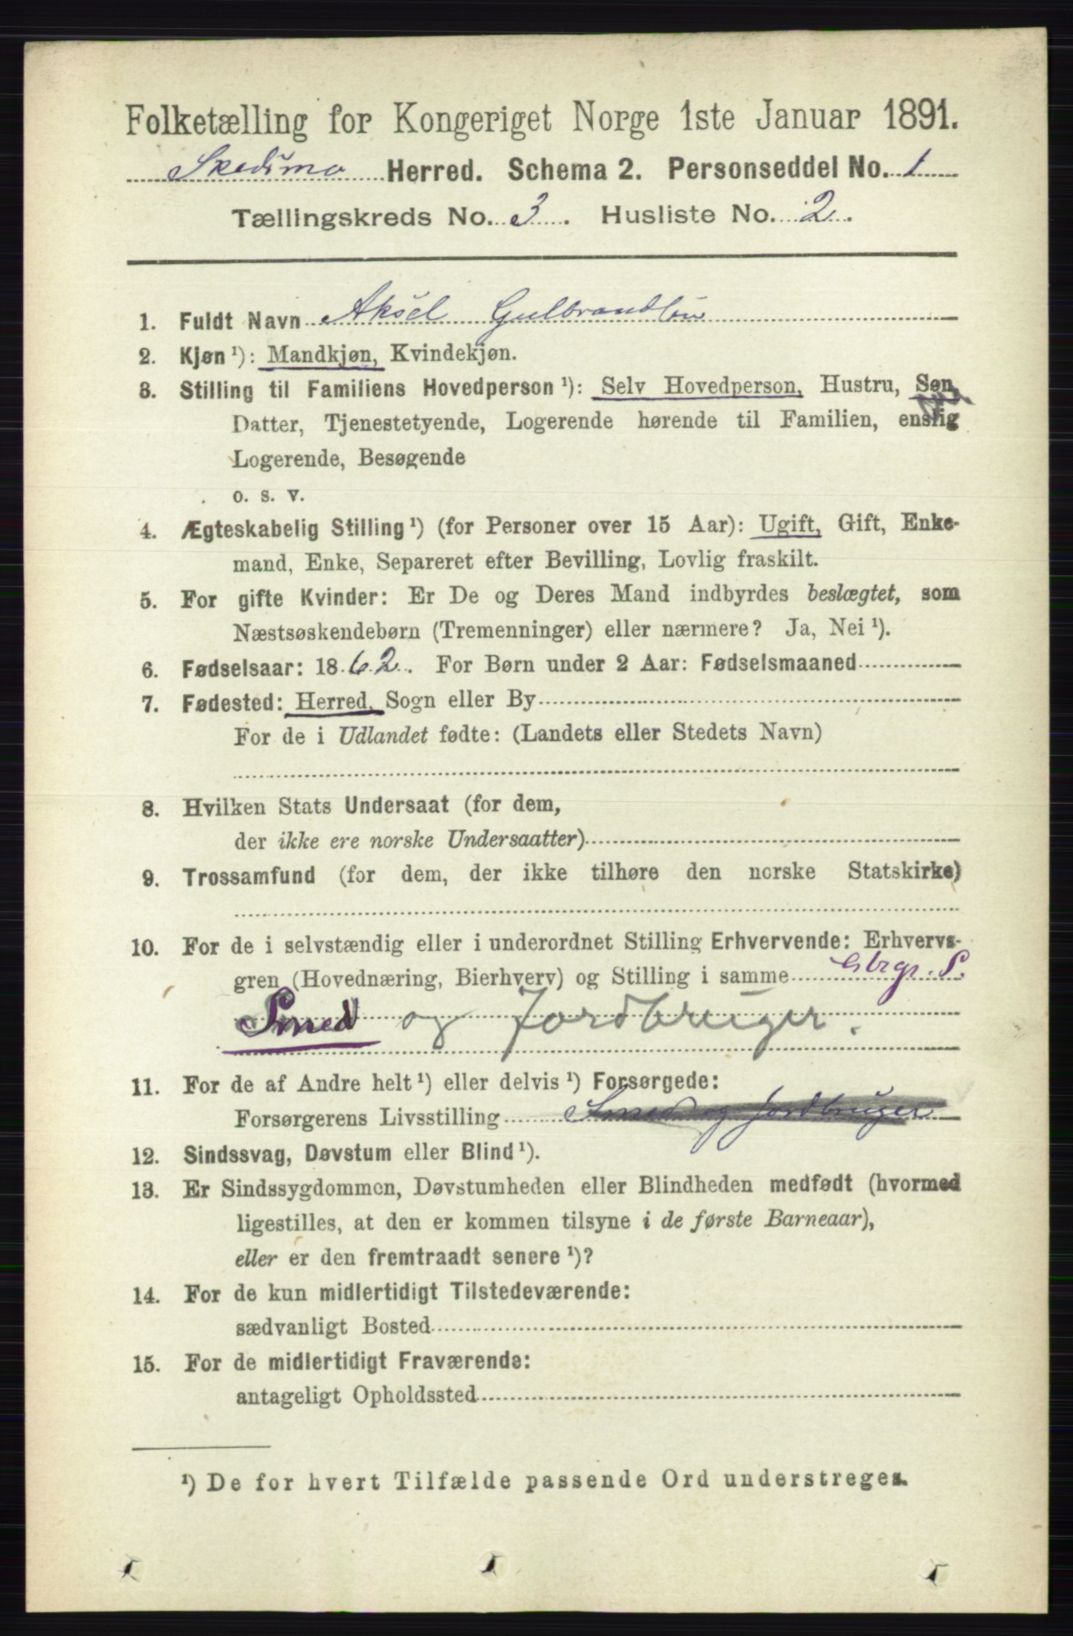 Folketælling for Kongeriget Norge 1ste Januar 1891.
Skedsmo Herred. Schema 2. Personseddel No. 1
Tællingskreds No. 3. Husliste No. 2.
1. Fuldt Navn Aksel Gulbrandsen
2. Kjøn ¹): Mandkjøn, Kvindekjøn.
3. Stilling til Familiens Hovedperson ¹): Selv Hovedperson, Hustru, Søn,
Datter, Tjenestetyende, Logerende hørende til Familien, enslig
Logerende, Besøgende
o. s. v.
4. Ægteskabelig Stilling ¹) (for Personer over 15 Aar): Ugift, Gift, Enke-
mand, Enke, Separeret efter Bevilling, Lovlig fraskilt.
5. For gifte Kvinder: Er De og Deres Mand indbyrdes beslægtet, som
Næstsøskendebørn (Tremenninger) eller nærmere? Ja, Nei ¹).
6. Fødselsaar: 1862. For Børn under 2 Aar: Fødselsmaaned
7. Fødested: Herred, Sogn eller By
For de i Udlandet fødte: (Landets eller Stedets Navn)
8. Hvilken Stats Undersaat (for dem,
der ikke ere norske Undersaatter)
9. Trossamfund (for dem, der ikke tilhøre den norske Statskirke)
10. For de i selvstændig eller i underordnet Stilling Erhvervende: Erhvervs-
gren (Hovednæring, Bierhverv) og Stilling i samme Gbrgr. S.
Smed og Jordbruger.
11. For de af Andre helt ¹) eller delvis ¹) Forsørgede:
Forsørgerens Livsstilling Smed og Jordbruger
12. Sindssvag, Døvstum eller Blind ¹).
13. Er Sindssygdommen, Døvstumheden eller Blindheden medfødt (hvormed
ligestilles, at den er kommen tilsyne i de første Barneaar),
eller er den fremtraadt senere ¹)?
14. For de kun midlertidigt Tilstedeværende:
sædvanligt Bosted
15. For de midlertidigt Fraværende:
antageligt Opholdssted
¹) De for hvert Tilfælde passende Ord understreges.